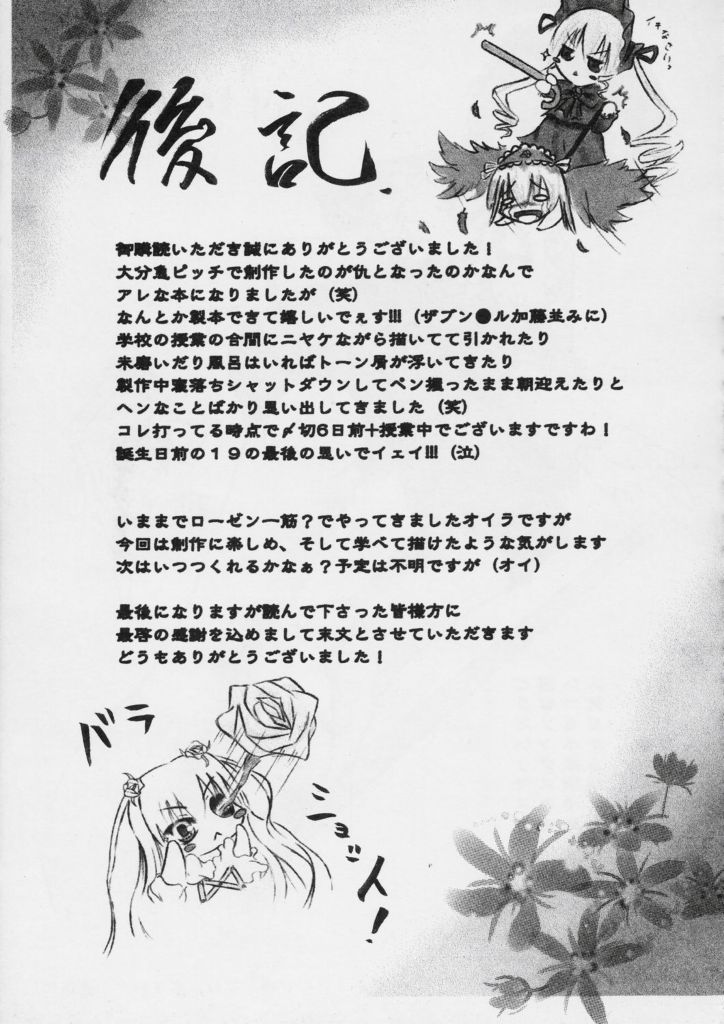 後記
御購読いただき誠にありがとうございました！
大分急ピッチで創作したのが仇となったのかなんで
アレな本になりましたが（笑）
なんとか製本できて嬉しいでぇす!!!（ザブン●ル加藤並みに）
学校の授業の合間にニヤケながら描いてて引かれたり
米磨いだり風呂はいればトーン屑が浮いてきたり
製作中寝落ちシャットダウンしてペン握ったまま朝迎えたりと
ヘンなことばかり思い出してきました（笑）
コレ打ってる時点で〆切6日前+授業中でございますですわ！
誕生日前の１９の最後の思いでイェイ!!!（泣）
いままでローゼン一筋？でやってきましたオイラですが
今回は創作に楽しめ、そして学べて描けたような気がします
次はいつつくれるかなぁ？予定は不明ですが（オイ）
最後になりますが読んで下さった皆様方に
最啓の感謝を込めまして末文とさせていただきます
どうもありがとうございました！
バラ
ショ人！